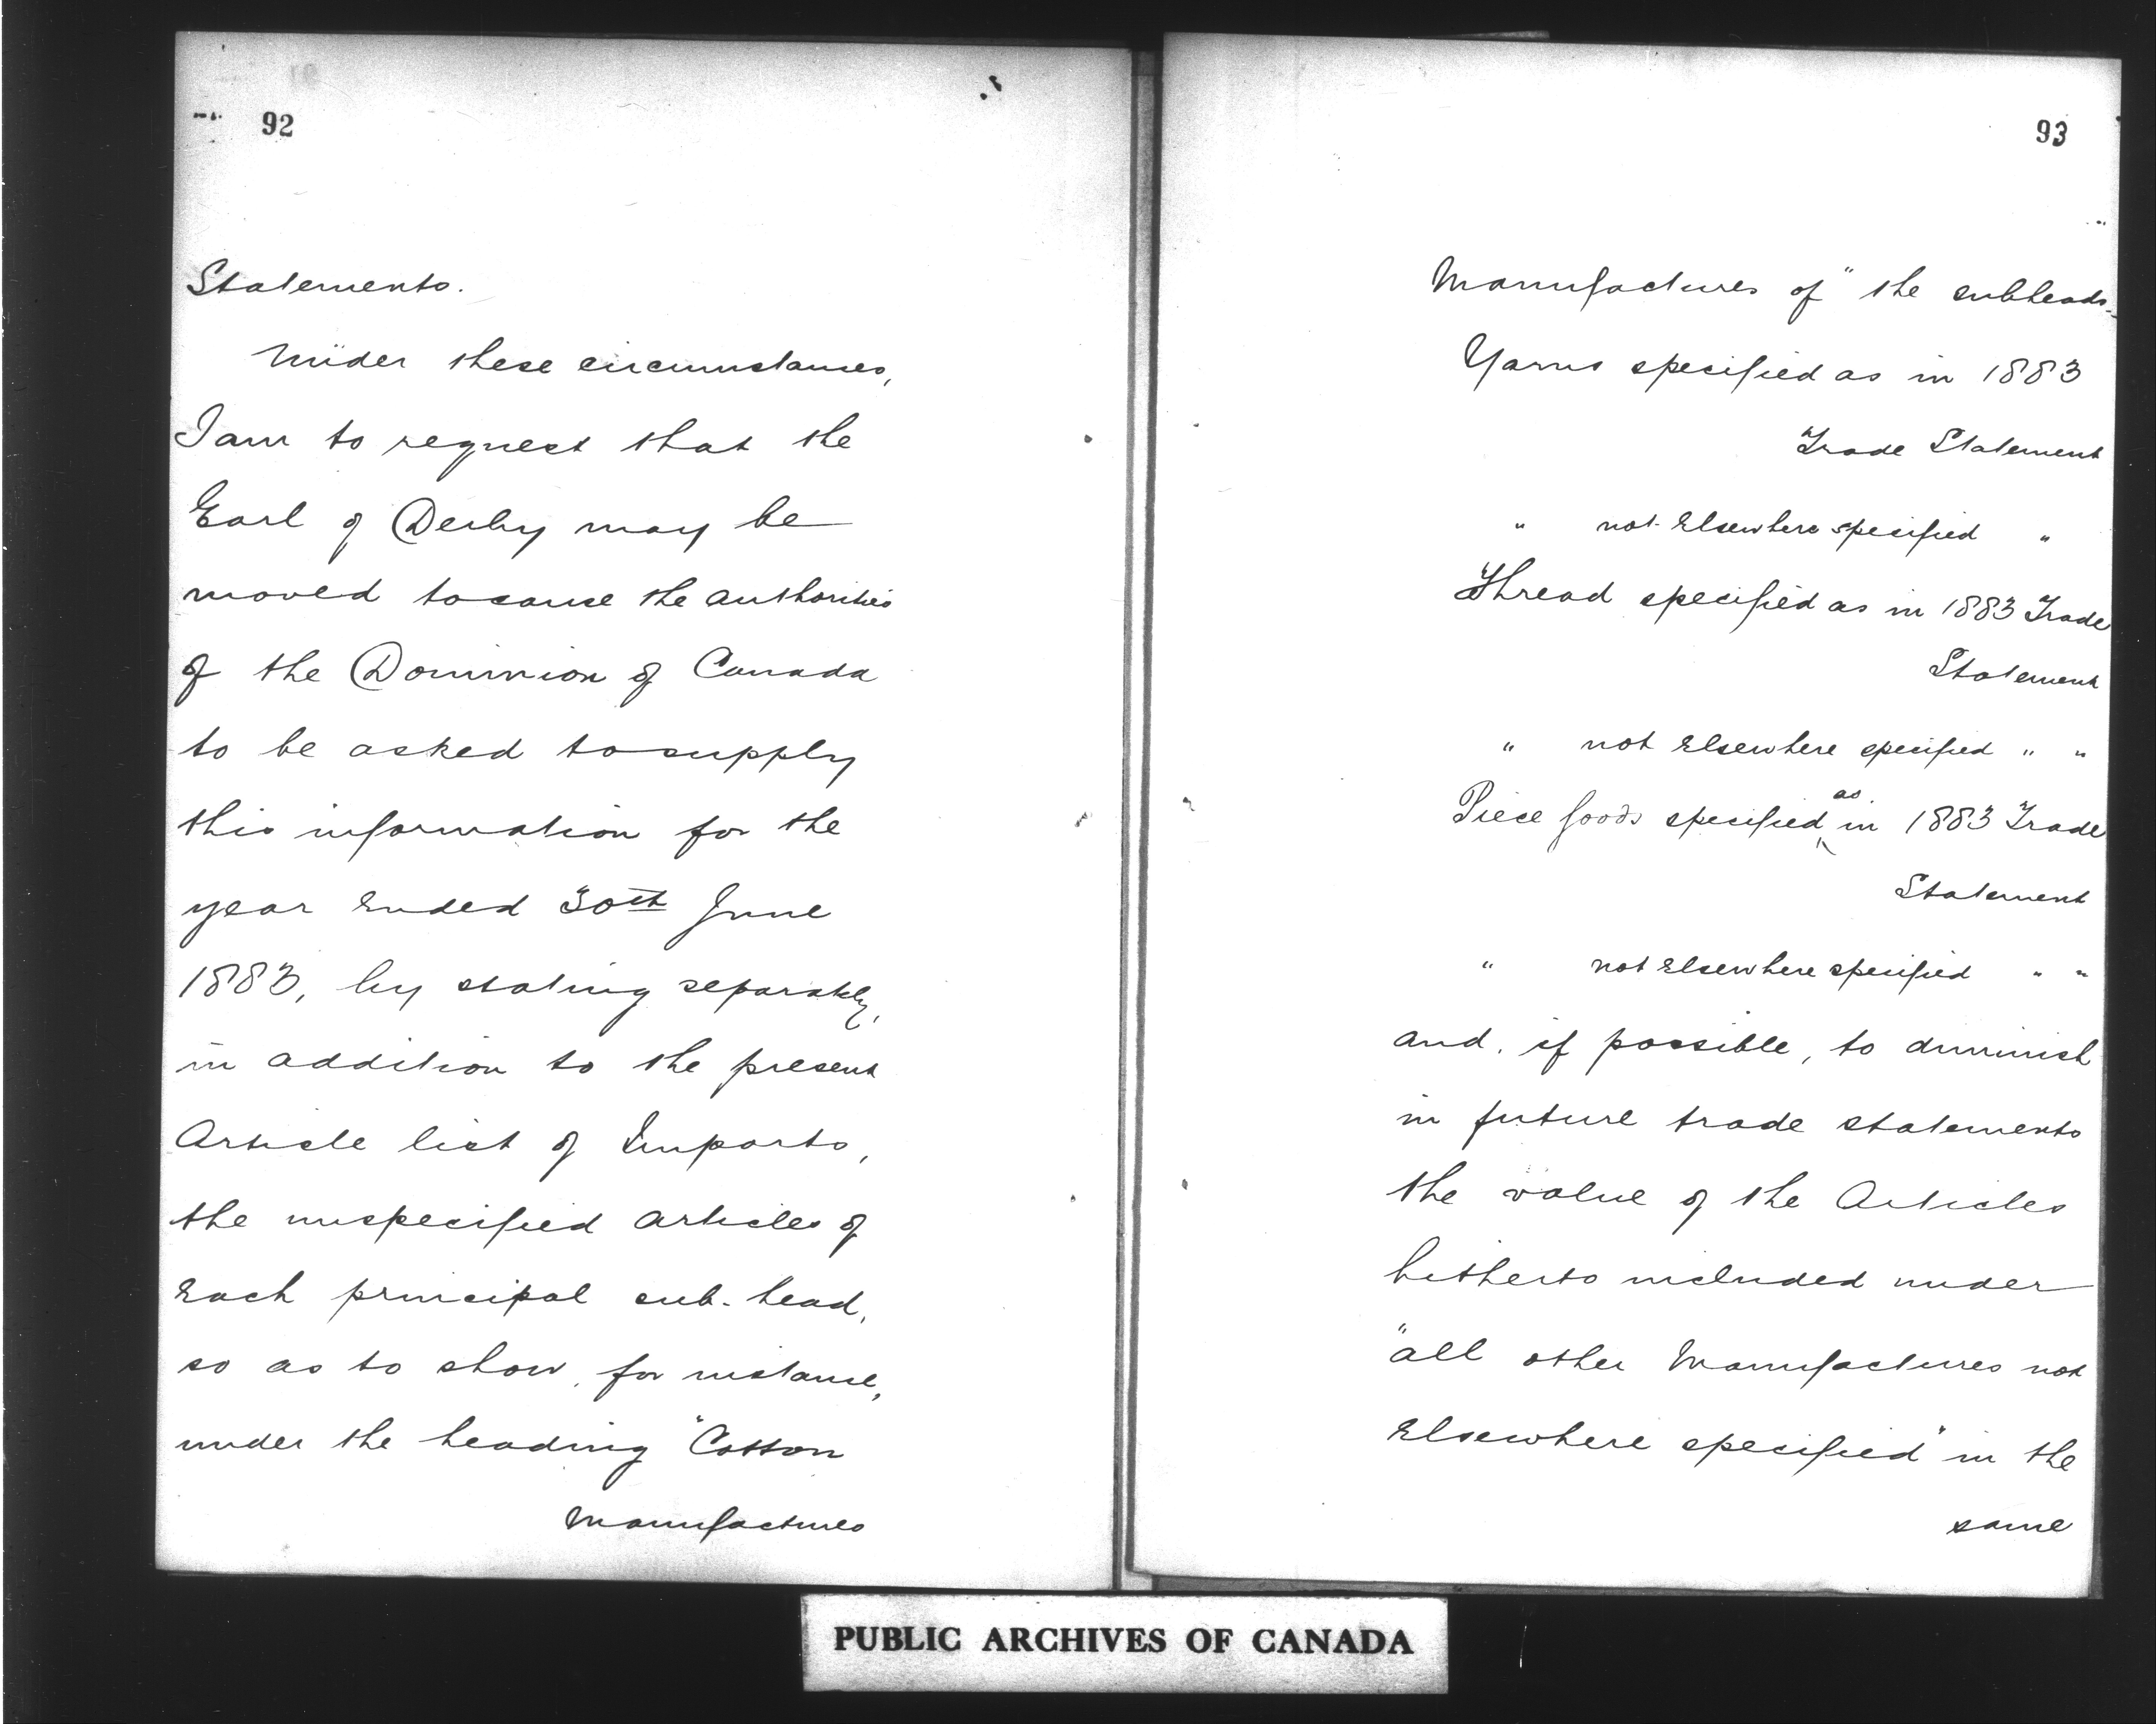 92
Statements.
Under these circumstances,
I am to request that the
Earl of Derby may be
moved to cause the authorities
of the Dominion of Canada
to be asked to supply
this information for the
year ended 30th June
1883, by stating separately,
in addition to the present
Article list of Imports,
the unspecified articles of
each principal sub-head,
so as to show, for instance,
under the heading "Cotton
Manufactures
93
Manufactures of" the subheads.
Yarns specified as in 1883
Trade Statement
" not elsewhere specified "
Thread specified as in 1883 Trade
Statement
" not elsewhere specified " "
Piece Goods specified as in 1883 Trade
Statement
" not elsewhere specified " "
and, if possible, to diminish
in future trade statements
the value of the Articles
hitherto included under
"all other Manufactures not
elsewhere specified" in the
same
PUBLIC ARCHIVES OF CANADA